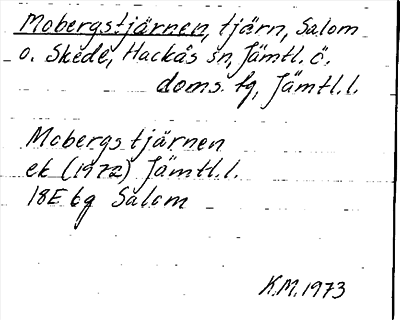 Mobergstjärnen, tjärn, Salom
o. Skede, Hackås sn, Jämtl. ö.
doms. fg, Jämtl. l.
Mobergstjärnen
ek (1972) Jämtl. l.
18E 6g Salom
K.M. 1973